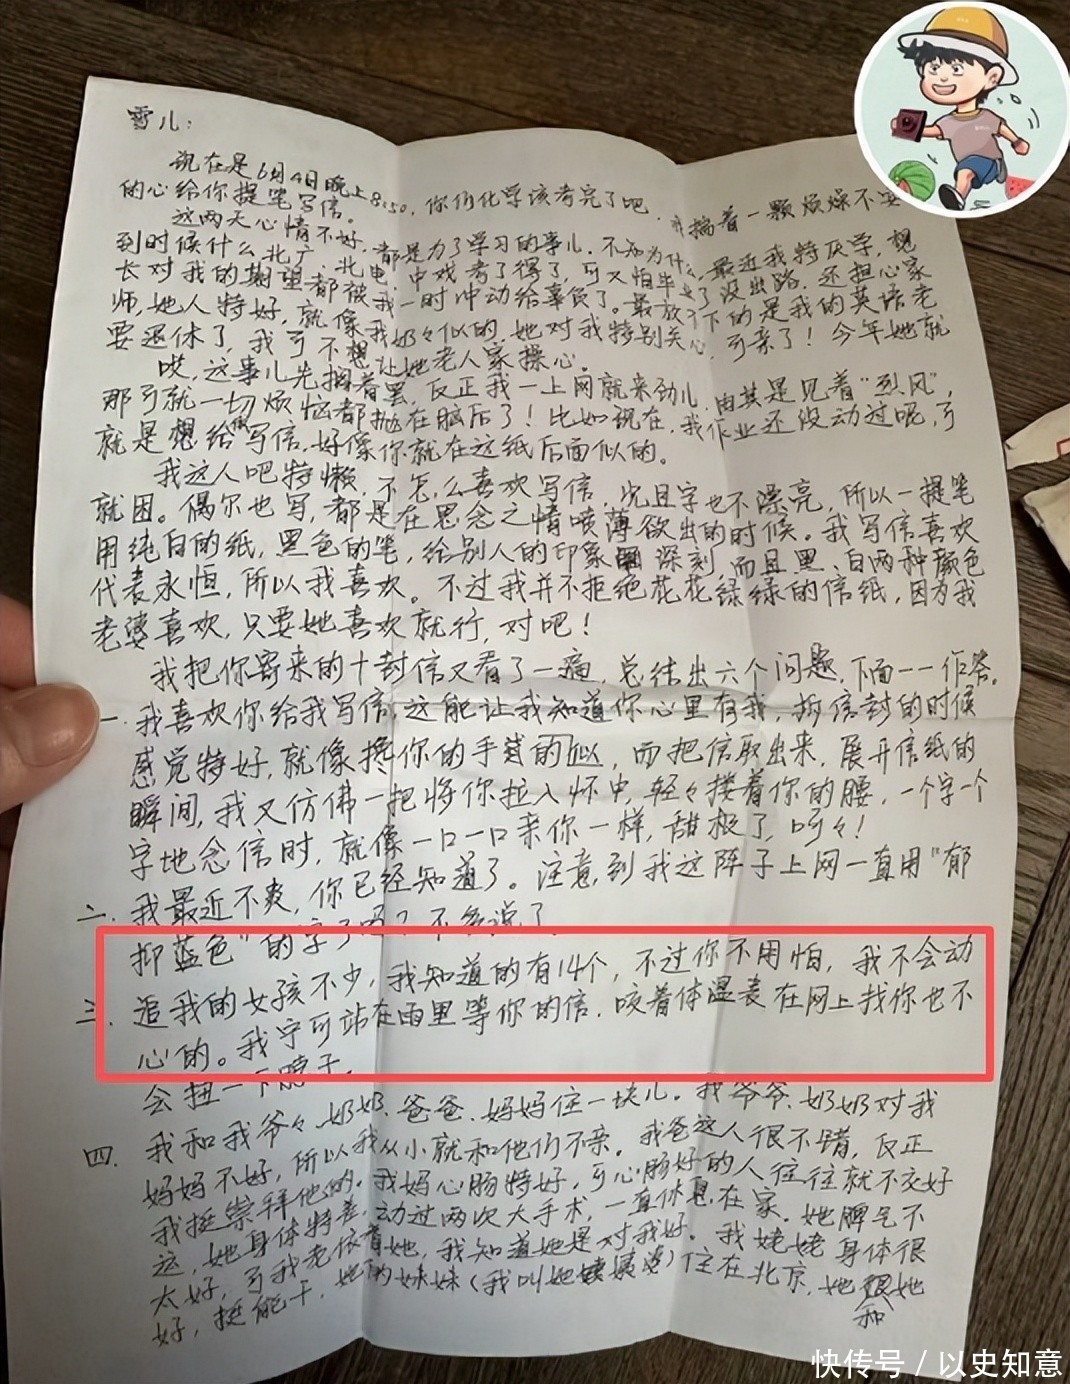 雪儿：
现在是6月4日晚上8:50，你们化学该考完了吧，我揣着一颗烦燥不安
的心给你提笔写信。
这两天心情不好，都是为了学习的事儿，不知为什么，最近我特厌学，想
到时候什么北广、北电、中戏考了得了，可又怕毕业了没出路，还担心家
长对我的期望都被我一时冲动给辜负了。最放不下的是我的英语老
师，她人特好，就像我奶々似的，她对我特别关心，可亲了！今年她就
要退休了，我可不想让她老人家操心。
哎，这事儿先搁着罢，反正我一上网就来劲儿，由其是见着“烈风”，
那可就一切烦恼都抛在脑后了！比如现在，我作业还没动过呢，可
就是想给你写信，好像你就在这纸后面似的。
我这人吧特懒，不怎么喜欢写信，况且字也不漂亮，所以一提笔
就困。偶尔也写，都是在思念之情喷薄欲出的时候。我写信喜欢
用纯白的纸，黑色的笔，给别人的印象深刻，而且黑、白两种颜色
代表永恒，所以我喜欢。不过我并不拒绝花花绿绿的信纸，因为我
老婆喜欢，只要她喜欢就行，对吧！
我把你寄来的十封信又看了一遍，总结出六个问题，下面一一作答。
一.我喜欢你给我写信，这能让我知道你心里有我，拆信封的时候
感觉特好，就像搀你的手似的，而把信取出来，展开信纸的
瞬间，我又仿佛一把将你拉入怀中，轻々搂着你的腰，一个字一个
字地念信时，就像一口一口亲你一样，甜极了，呵々！
二.我最近不爽，你已经知道了。注意到我这阵子上网一直用“郁
抑蓝色”的字了吗？不多说了
三.追我的女孩不少，我知道的有14个，不过你不用怕，我不会动
心的。我宁可站在雨里等你的信，咬着体温表在网上找你也不
会扭一下脖子。
四.我和我爷々、奶奶、爸爸、妈妈住一块儿。我爷爷、奶奶对我
妈妈不好，所以我从小就和他们不亲。我爸这人很不错，反正
我挺崇拜他的。我妈心肠特好，可心肠好的人往往就不交好
运，她身体特差，动过两次大手术，一直休息在家。她脾气不
太好，可我老依着她，我知道她是对我好。我姥姥身体很
好，挺能干，她的妹妹（我叫她姨婆）住在北京，她和她
快传号／以史知意